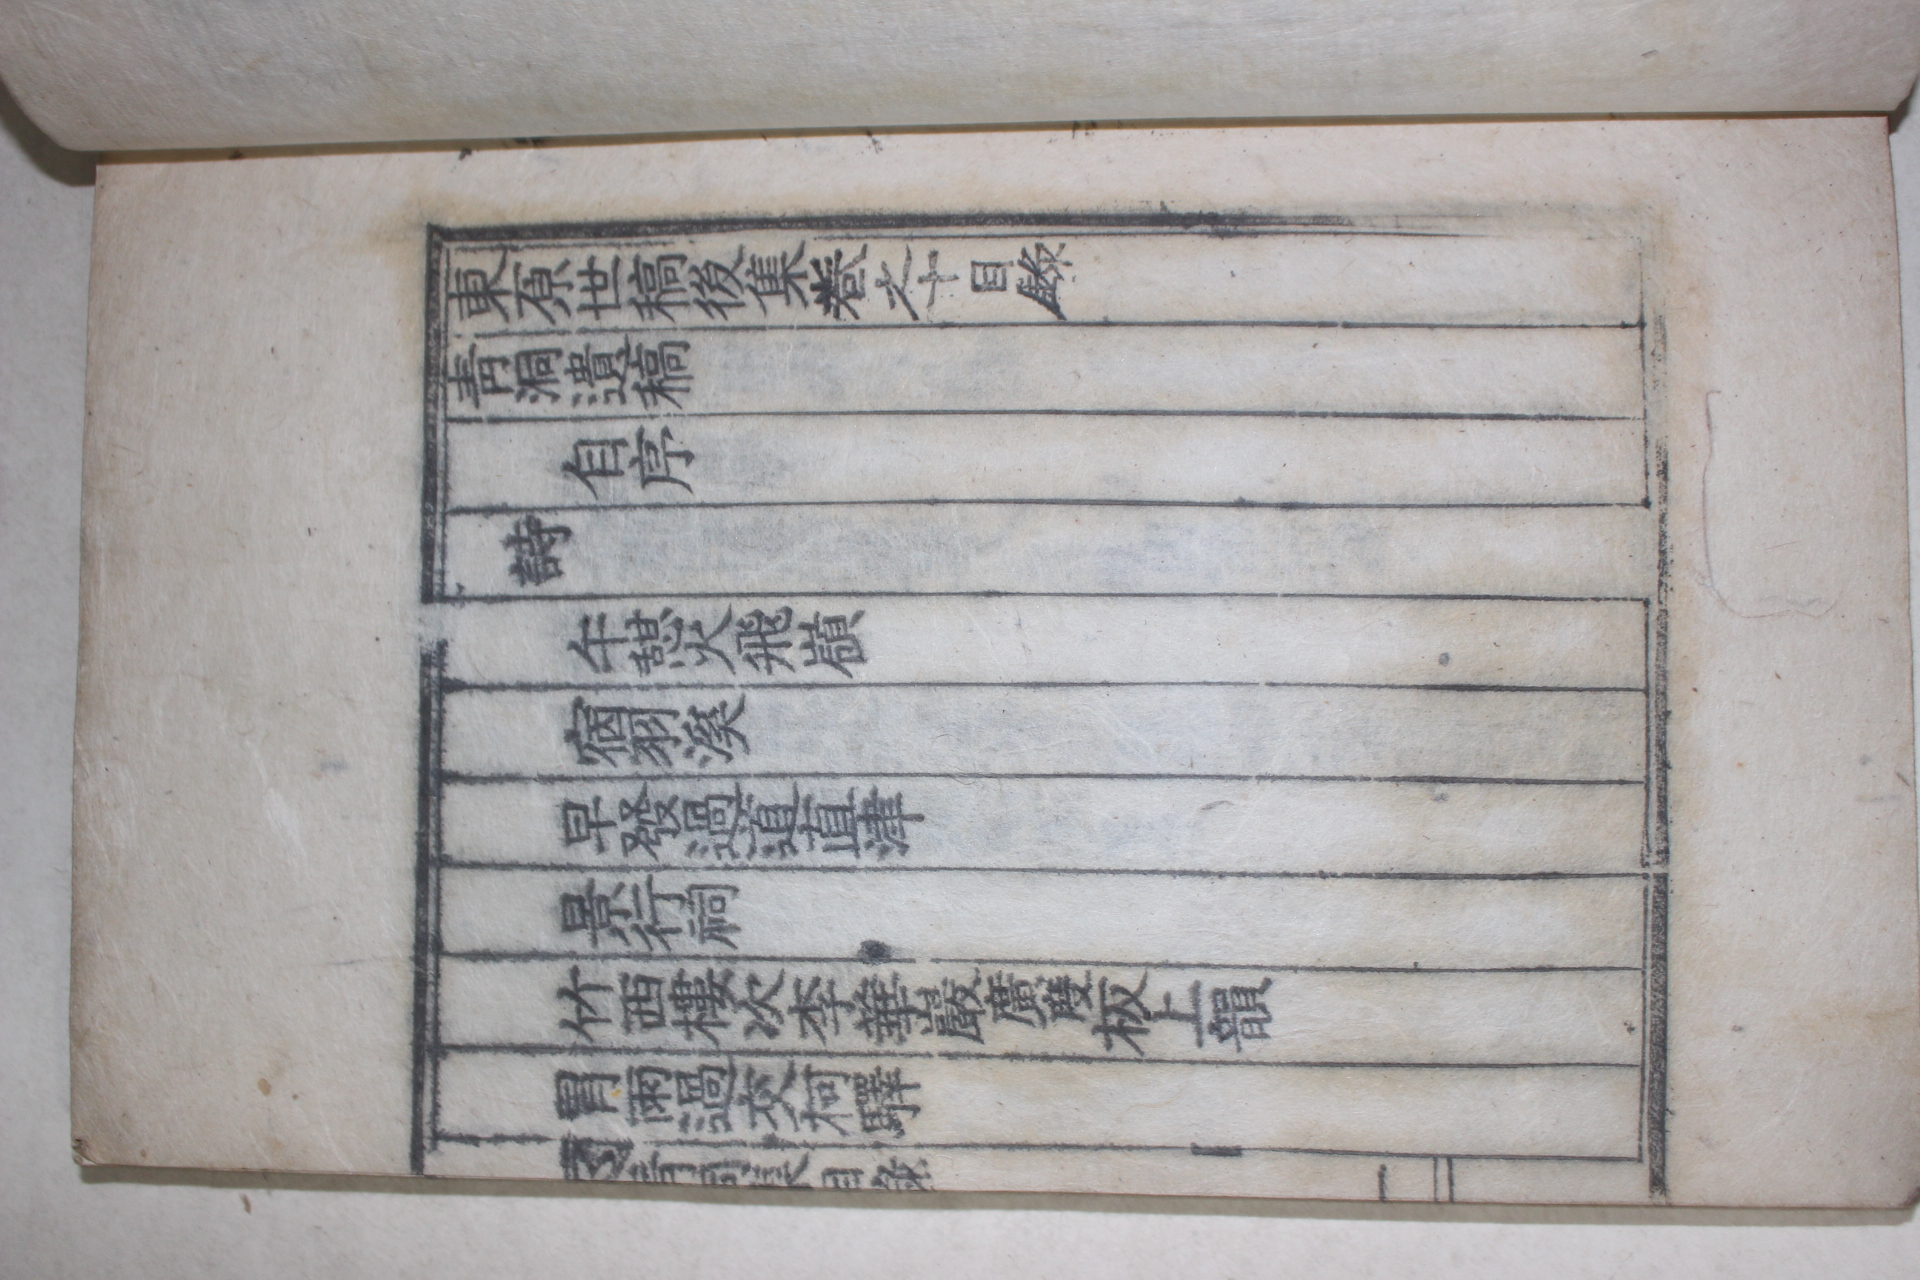 東原世稿後集卷之十目錄
靑洞遺稿
自序
詩
午憇火飛嶺
宿羽溪
早發過道直津
景行祠
竹西樓次李華巖廣度板上韻
冒雨過交柯驛